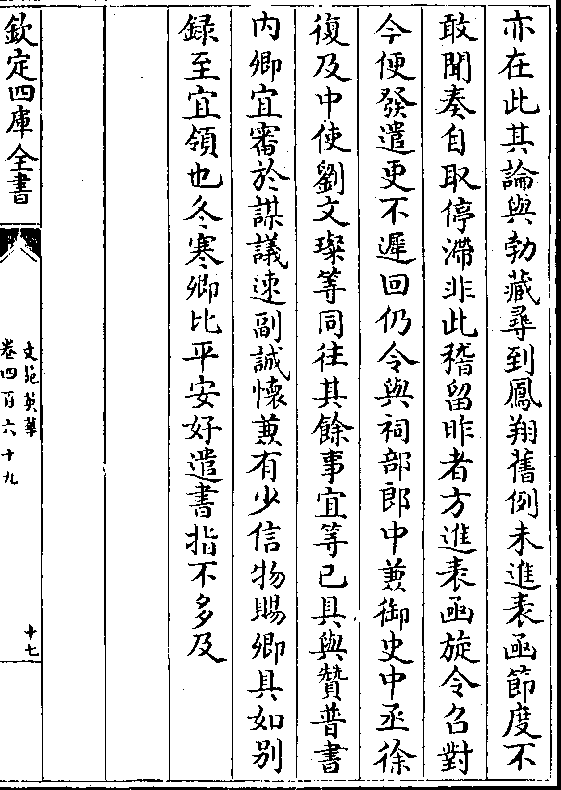 亦在此其論與勃藏尋到鳳翔舊例未進表函節度不
敢聞奏自取停滯非此稽留昨者方進表函旋令召對
今便發遣更不遲回仍令與祠部郎中兼御史中丞徐
復及中使劉文璨等同往其餘事宜等已具與贊普書
内卿宜審於謀議速副誠懷兼有少信物賜卿具如别
録至宜領也冬寒卿比平安好遣書指不多及
欽定四庫全書
文苑英華
卷四百六十九
十七